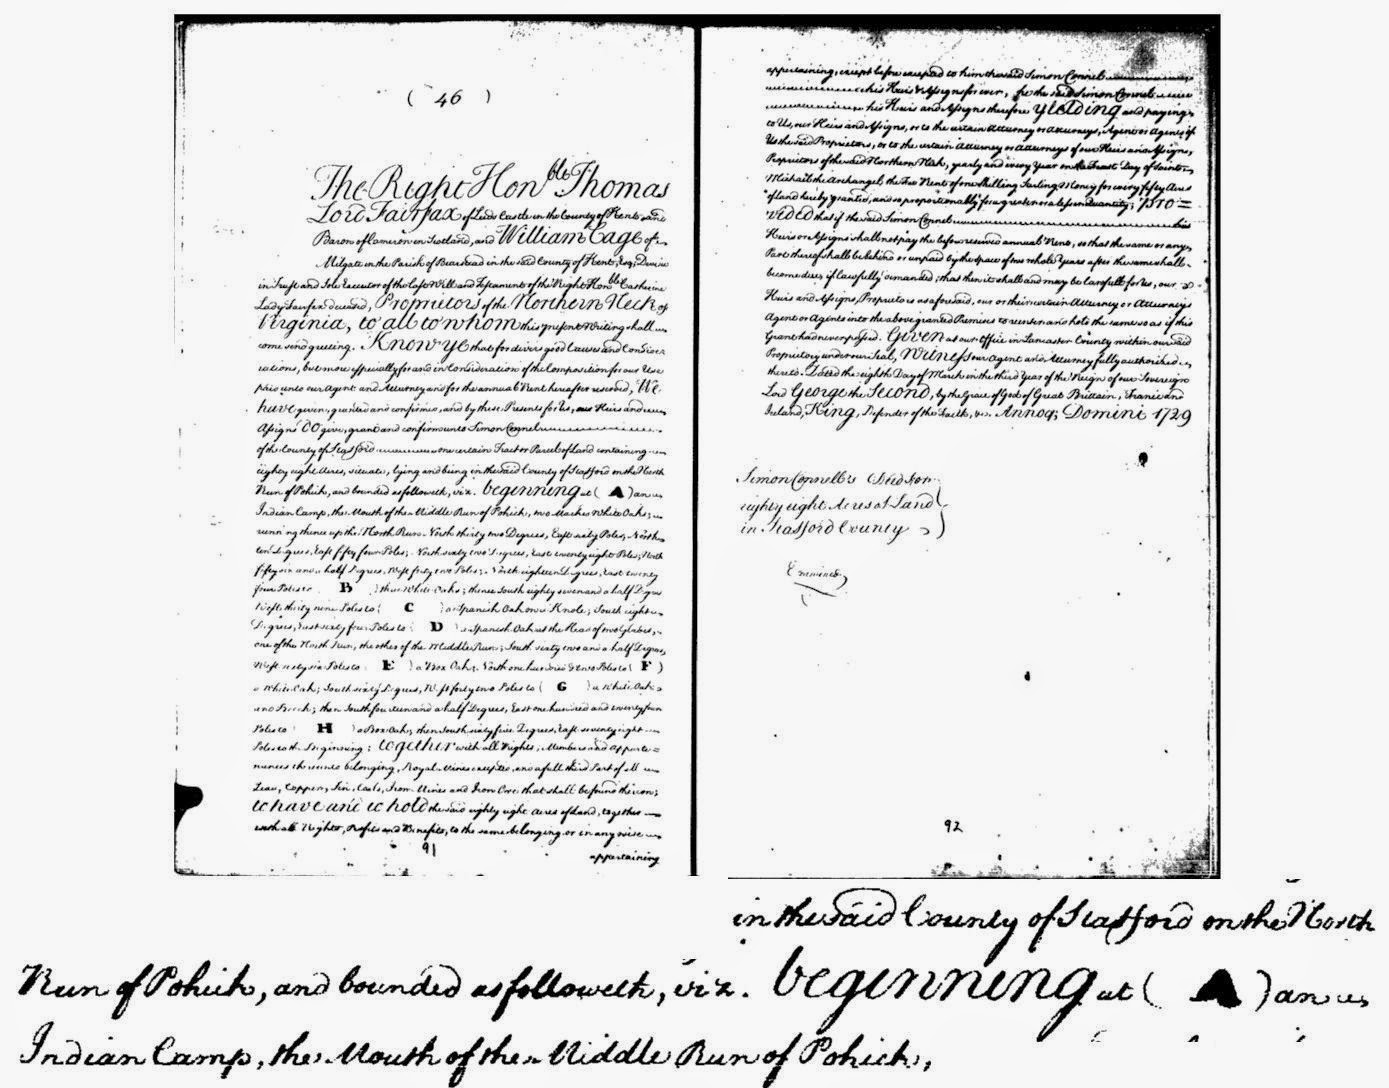 ( 46 )
The Right Hon.ble Thomas
Lord Fairfax of Leeds Castle in the County of Kent and
Baron of Cameron in Scotland, and William Cage of
Milgate in the Parish of Bearstead in the said County of Kent, Esq; Devisee
in Trust and Sole Executor of the Last Will and Testament of the Right Hon.ble Catherine
Lady Fairfax deceased, Proprietors of the Northern Neck of
Virginia, to all to whom this present Writing shall
come send greeting. Know ye that for divers good Causes and Consider
ations, but more especially for and in Consideration of the Composition for our Use
paid unto our Agent and Attorney and for the annual Rent hereafter reserved, We
have given, granted and confirmed, and by these Presents for Us, our Heirs and
Assigns Do give, grant and confirm unto Simon Connel
of the County of Stafford one certain Tract or Parcel of Land containing
eighty eight Acres, situate, lying and being in the said County of Stafford on the North
Run of Pohick, and bounded as followeth, viz. beginning at ( A ) an
Indian Camp, the Mouth of the Middle Run of Pohick, two Marked White Oaks;
running thence up the North Run North thirty two Degrees, East sixty Poles; North
ten Degrees, East fifty four Poles; North sixty two Degrees, East twenty eight Poles; North
fifty six and a half Degrees, West forty two Poles; North eighteen Degrees, East twenty
four Poles to B ) three White Oaks; thence South eighty seven and a half Degrees
West thirty nine Poles to ( C ) a Spanish Oak on a Knole; South eight
Degrees, East sixty four Poles to D a Spanish Oak at the Head of two Glades,
one of the North Run, the other of the Middle Run; South sixty two and a half Degrees,
West sixty six Poles to E ) a Box Oak; North one hundred & two Poles to ( F )
a White Oak; South sixty Degrees, West forty two Poles to ( G ) a White Oak
and Beech; then South fourteen and a half Degrees, East one hundred and twenty four
Poles to H ) a Box Oak; then South sixty five Degrees, East seventy eight
Poles to the Beginning; together with all Rights, Members and Apperte=
nances thereunto belonging, Royal Mines excepted, and a full third Part of all
Lead, Copper, Tin, Coals, Iron Mines and Iron Ore that shall be found thereon;
to have and to hold the said eighty eight Acres of Land, together
with all Rights, Profits and Benefits, to the same belonging or in any wise
91
appertaining
appertaining, except before excepted to him the said Simon Connel
his Heirs & Assigns for ever, he the said Simon Connel
his Heirs and Assigns therefore yielding and paying
to Us, our Heirs and Assigns, or to the certain Attorney or Attorneys, Agent or Agents of
Us the said Proprietors, or to the certain Attorney or Attorneys of our Heirs and Assigns,
Proprietors of the said Northern Neck, yearly and every Year on the Feast Day of Saint
Michael the Archangel, the Fee Rent of one Shilling Sterling Money for every fifty Acres
of Land hereby granted, and so proportionably for a greater or a lesser Quantity; Pro=
vided that if the said Simon Connel his
Heirs or Assigns shall not pay the before reserved annual Rent, so that the same or any
Part thereof shall be behind or unpaid by the space of two whole Years after the same shall
become due, if lawfully demanded; that then it shall and may be lawfull for Us, our
Heirs and Assigns, Proprietors as aforesaid, our or their certain Attorney or Attorneys
Agent or Agents into the above granted Premises to reenter and hold the same so as if this
Grant had never passed. Given at our Office in Lancaster County within our said
Proprietary under our Seal, Witness our Agent and Attorney fully authorised
thereto. Dated the eighth Day of March in the third Year of the Reign of our Sovereign
Lord George the Second, by the Grace of God of Great Brittain, France and
Ireland, King, Defender of the Faith, &c. Annoq; Domini 1729
Simon Connell's Deed for
eighty eight Acres of Land
in Stafford County
Examined
92
in the said County of Stafford on the North
Run of Pohick, and bounded as followeth, viz. beginning at ( A ) an
Indian Camp, the Mouth of the Middle Run of Pohick,